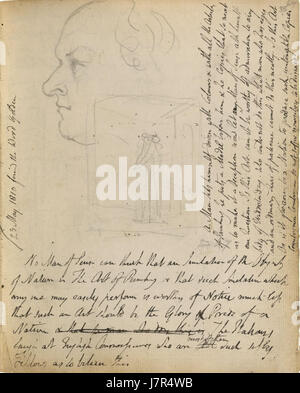 23 May 1810 found the Word Golden
A Man sets himself down with Colours & with all the Articles
of Painting he puts a Model before him & he copies that so neat
as to make it a Deception now let any Man of Sense ask himself
one Question Is this Art. can it be worthy of admiration to any
body of Understanding. Who could not do this what man who has eyes
and an ordinary share of patience cannot do this neatly. Is this Art
Or is it glorious to a Nation to produce such contemptible Copies
No Man of Sense can think that an Imitation of the Objects
of Nature is The Art of Painting or that such Imitation which
any one may easily perform is worthy of Notice much less
that such an Art should be the Glory & Pride of a
Nation The Italians
laugh at English Connoisseurs who are most of them such silly
Fellows as to believe this
alamy
Image ID: J7R4WB
www.alamy.com